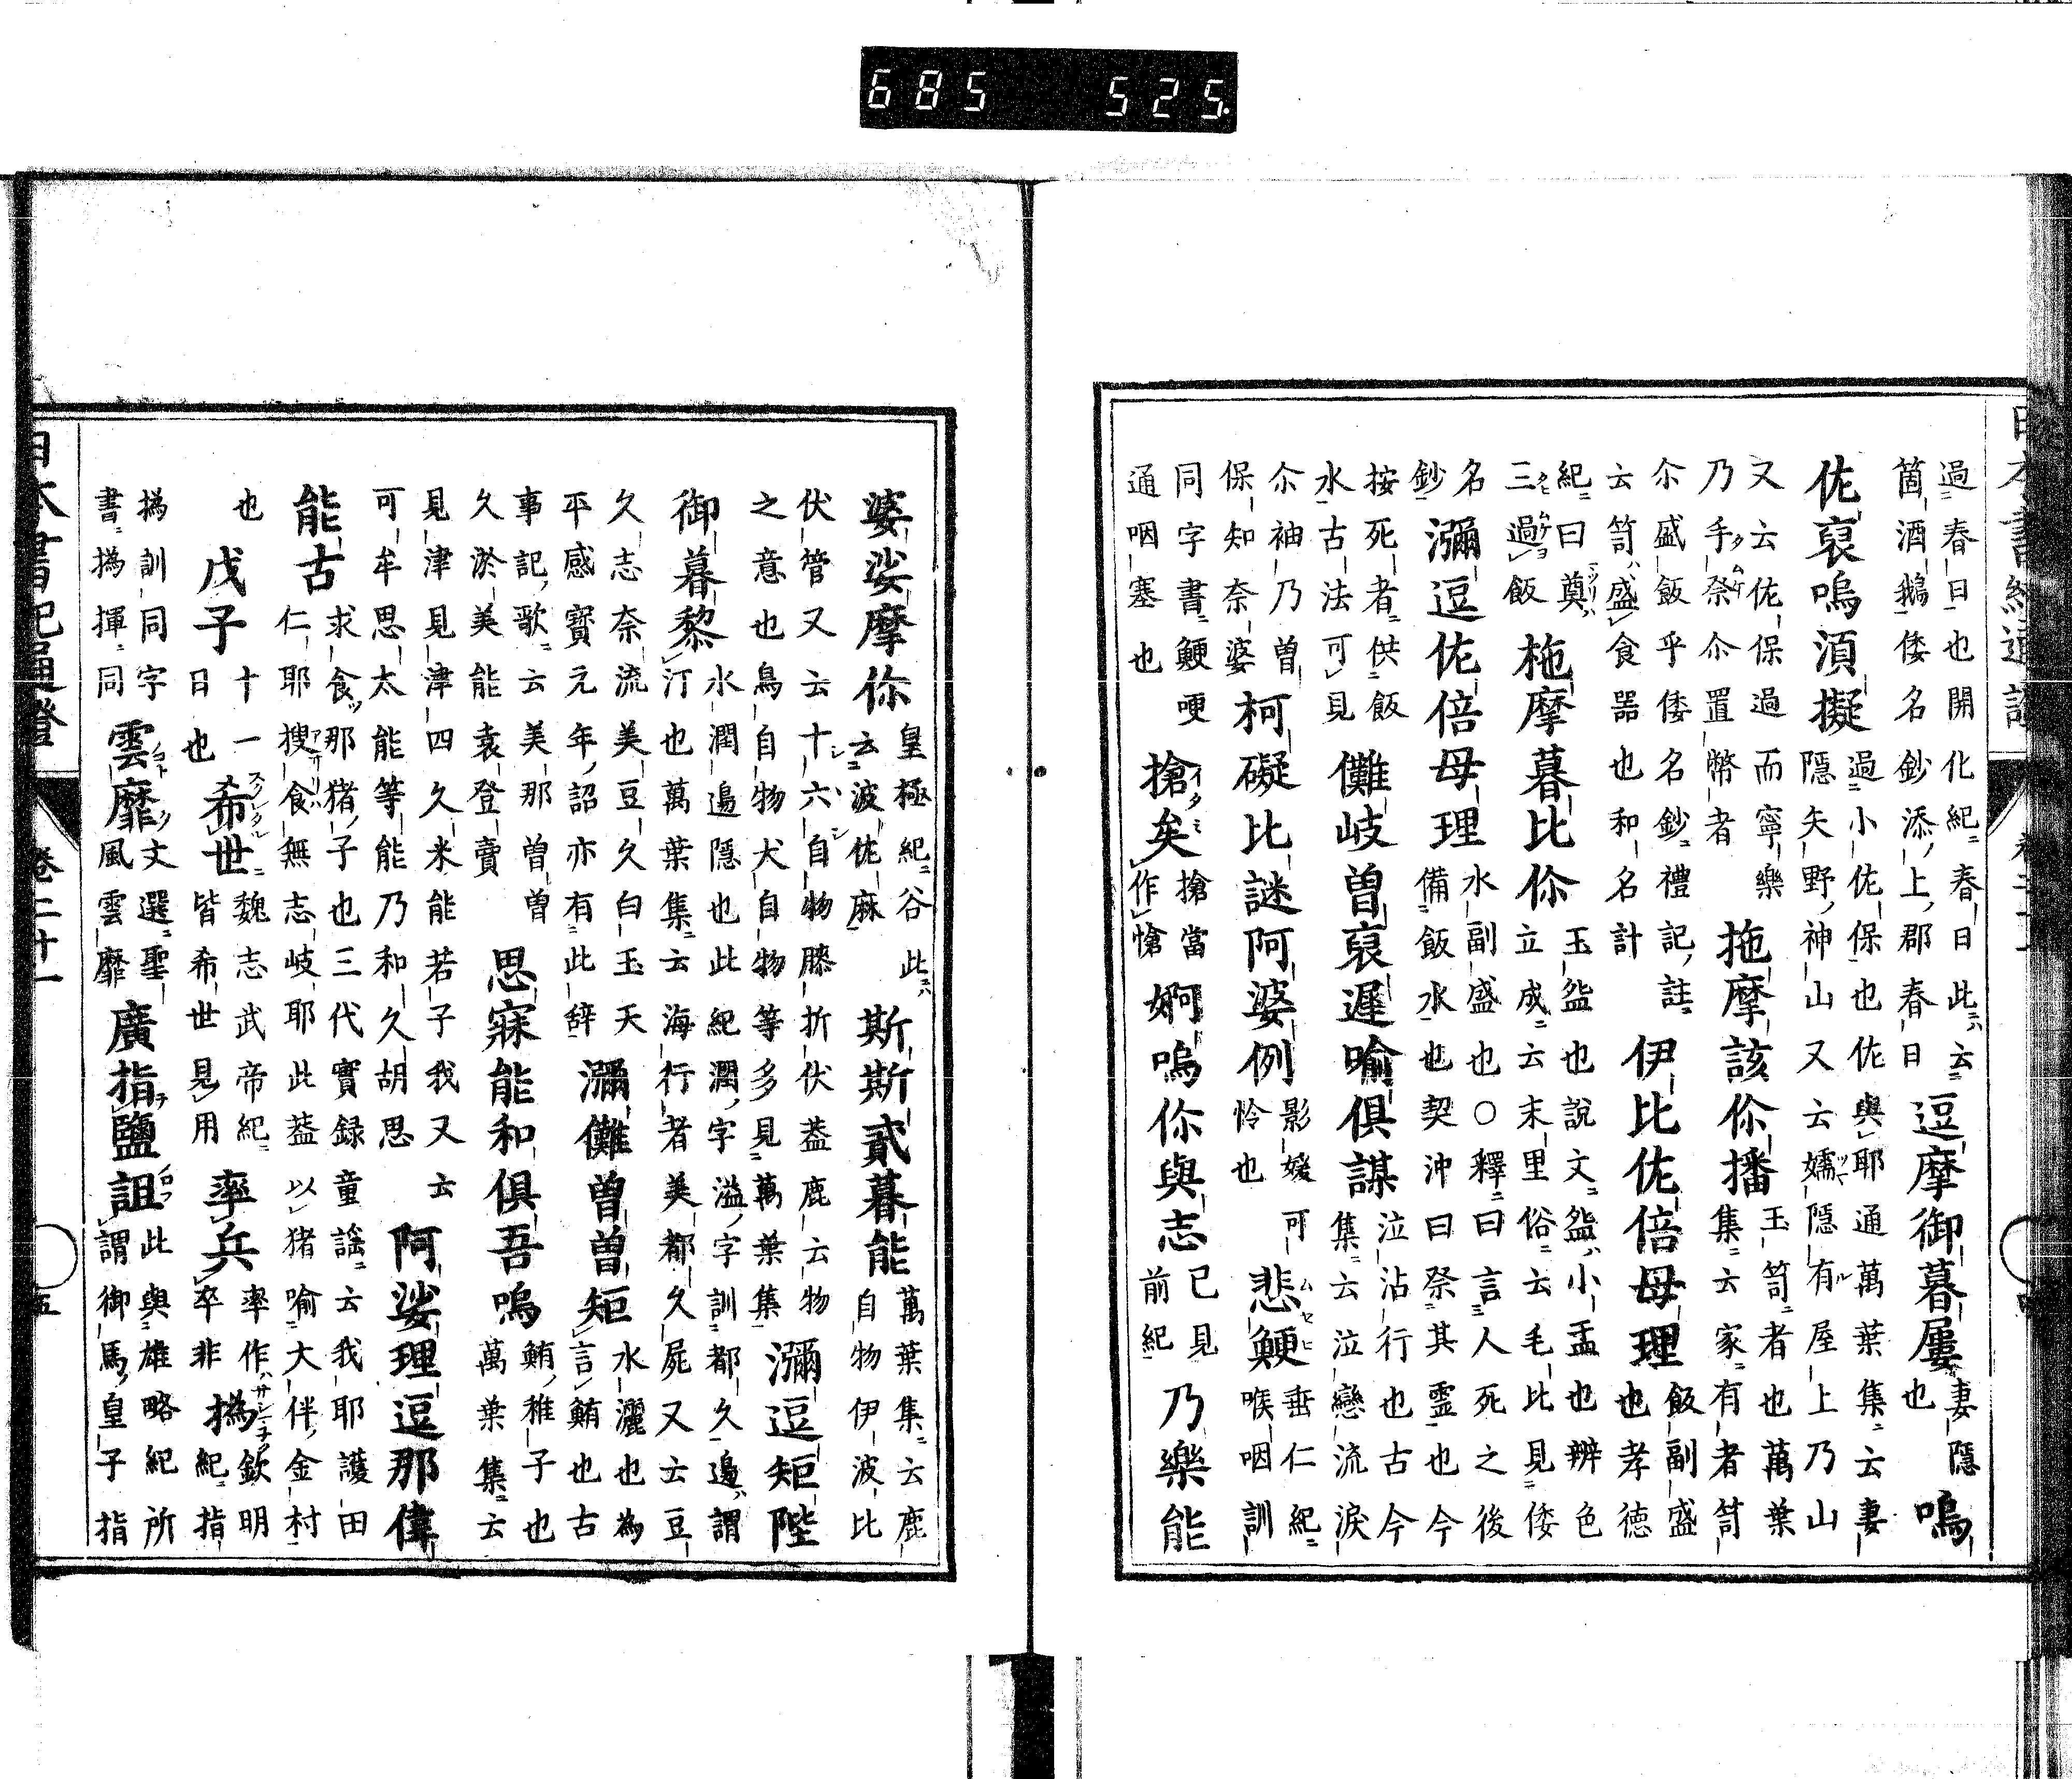 685 525
過春日也開化紀春日此云
箇酒鵝倭名鈔添上郡春日
逗摩御暮屢妻隱也嗚
佐裒嗚湏擬過小佐保也佐與耶通萬葉集云妻
隱矢野神山又云嬬隱有屋上乃山
又云佐保過而寧樂
乃手祭尒置幣者
拖摩該佡播玉笥者也萬葉
集云家有者笥
尒盛飯乎倭名鈔禮記註
云笥盛食器也和名計
伊比佐倍母理飯副盛
也孝徳
紀曰奠
三過飯
柂摩暮比佡玉盌也說文盌小盂也辨色
立成云末里俗云毛比見倭
名鈔
瀰逗佐倍母理水副盛也○釋曰言人死之後
備飯水也契沖曰祭其霊也今
按死者供飯
水古法可見
儺岐曽裒遲喻俱謀泣沾行也古今
集云泣戀流淚
尒袖乃曽
保知奈婆
柯礙比謎阿婆例影媛可
怜也
悲鯁垂仁紀
喉咽訓
同字書鯁哽
通咽塞也
搶矣搶當
作愴
婀嗚佡與志已見
前紀
乃樂能
婆娑摩佡皇極紀谷此
云波佐麻
斯斯貳暮能萬葉集云鹿
自物伊波比
伏管又云十六自物膝折伏葢鹿云物
之意也鳥自物犬自物等多見萬葉集
瀰逗矩陛
御暮黎水潤邉隱也此紀潤字溢字訓都久邉謂
汀也萬葉集云海行者美都久屍又云豆
久志奈流美豆久白玉天
平感寶元年詔亦有此辞
瀰儺曽曽矩水灑也為
言鮪也古
事記歌云美那曽曽
久淤美能袁登賣
思寐能和俱吾嗚鮪稚子也
萬葉集云
見津見津四久米能若子我又云
可牟思太能等能乃和久胡思
阿娑理逗那偉
能古求食那猪子也三代實録童謡云我耶護田
仁耶搜食無志岐耶此葢以猪喻大伴金村
也
戊子十一
日也
希世魏志武帝紀
皆希世見用
率兵率作
卒非
撝欽明
紀指
撝訓同字
書撝揮同
雲靡文選聖
風雲靡
廣指鹽詛此與雄略紀所
謂御馬皇子指
日本書紀通證 卷二十一 五